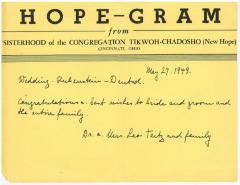 HOPE-GRAM
from
SISTERHOOD of the CONGREGATION TIKWOH-CHADOSHO (New Hope)
CINCINNATI, OHIO
May 27. 1949.
Wedding - Rubenstein - Dentod.
Congratulations & best wishes to bride and groom and
the entire family.
Dr. & Mrs. Leo Teitz and family